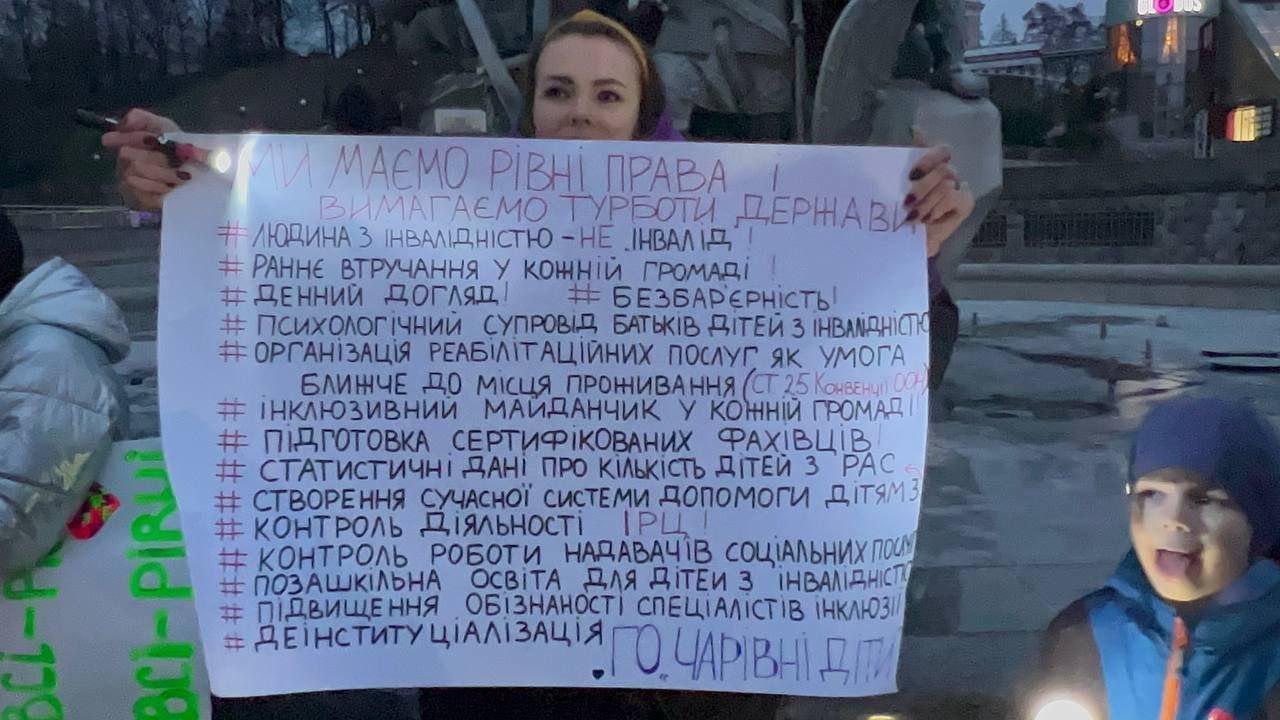 МИ МАЄМО РІВНІ ПРАВА !
ВИМАГАЄМО ТУРБОТИ ДЕРЖАВИ
# ЛЮДИНА З ІНВАЛІДНІСТЮ - НЕ ІНВАЛІД !
# РАННЄ ВТРУЧАННЯ У КОЖНІЙ ГРОМАДІ !
# ДЕННИЙ ДОГЛЯД! # БЕЗБАР'ЄРНІСТЬ!
# ПСИХОЛОГІЧНИЙ СУПРОВІД БАТЬКІВ ДІТЕЙ З ІНВАЛІДНІСТЮ
# ОРГАНІЗАЦІЯ РЕАБІЛІТАЦІЙНИХ ПОСЛУГ ЯК УМОГА
БЛИЖЧЕ ДО МІСЦЯ ПРОЖИВАННЯ (СТ 25 Конвенції ООН)
# ІНКЛЮЗИВНИЙ МАЙДАНЧИК У КОЖНІЙ ГРОМАДІ!
# ПІДГОТОВКА СЕРТИФІКОВАНИХ ФАХІВЦІВ!
# СТАТИСТИЧНІ ДАНІ ПРО КІЛЬКІСТЬ ДІТЕЙ З РАС
# СТВОРЕННЯ СУЧАСНОЇ СИСТЕМИ ДОПОМОГИ ДІТЯМ З
# КОНТРОЛЬ ДІЯЛЬНОСТІ ІРЦ !
# КОНТРОЛЬ РОБОТИ НАДАВАЧІВ СОЦІАЛЬНИХ ПОСЛУГ
# ПОЗАШКІЛЬНА ОСВІТА ДЛЯ ДІТЕЙ З ІНВАЛІДНІСТЮ
# ПІДВИЩЕННЯ ОБІЗНАНОСТІ СПЕЦІАЛІСТІВ ІНКЛЮЗІЇ
# ДЕІНСТИТУЦІАЛІЗАЦІЯ
ГО „ЧАРІВНІ ДІТИ
ВСІ-РІВНІ